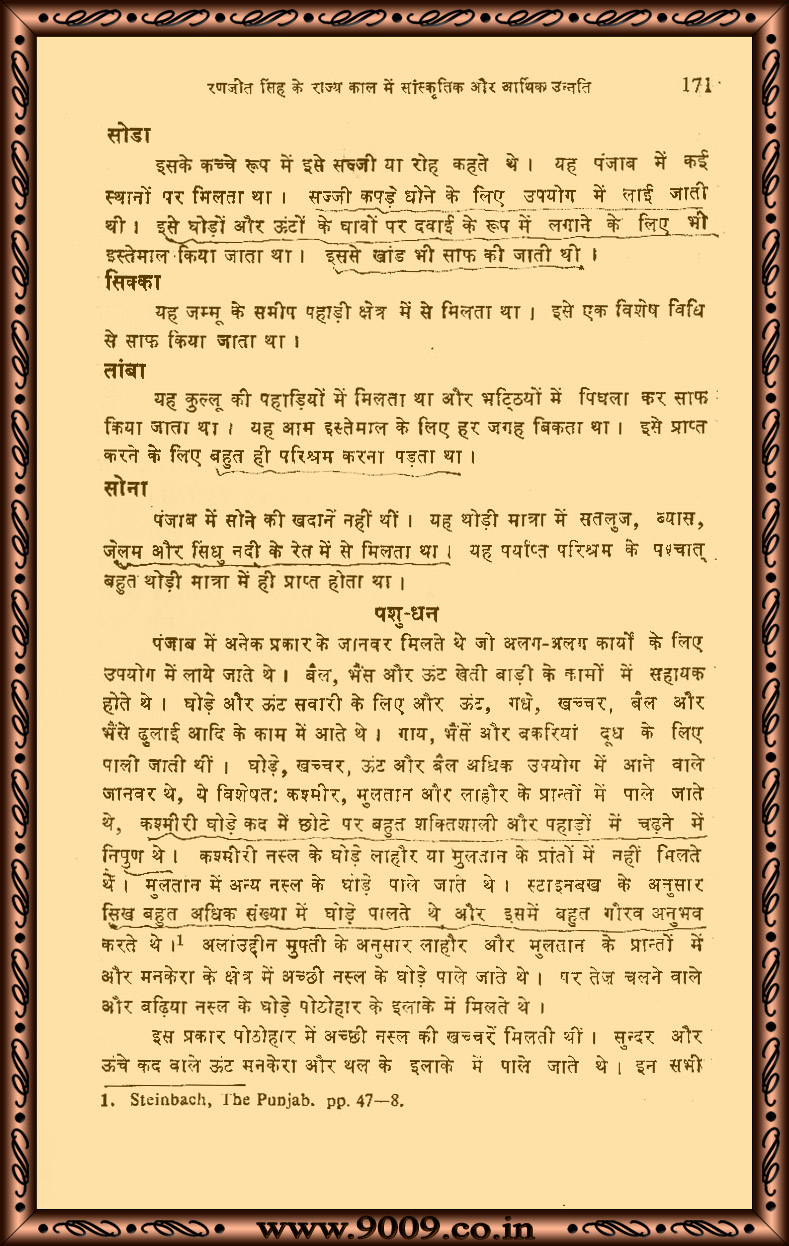 रणजीत सिंह के राज्य काल में सांस्कृतिक और आर्थिक उन्नति 171
सोडा
इसके कच्चे रूप में इसे सज्जी या रोह कहते थे । यह पंजाब में कई
स्थानों पर मिलता था । सज्जी कपड़े धोने के लिए उपयोग में लाई जाती
थी । इसे घोड़ों और ऊंटों के घावों पर दवाई के रूप में लगाने के लिए भी
इस्तेमाल किया जाता था । इससे खांड भी साफ की जाती थी ।
सिक्का
यह जम्मू के समीप पहाड़ी क्षेत्र में से मिलता था । इसे एक विशेष विधि
से साफ किया जाता था ।
तांबा
यह कुल्लू की पहाड़ियों में मिलता था और भट्ठियों में पिघला कर साफ
किया जाता था । यह आम इस्तेमाल के लिए हर जगह बिकता था । इसे प्राप्त
करने के लिए बहुत ही परिश्रम करना पड़ता था ।
सोना
पंजाब में सोने की खदानें नहीं थीं । यह थोड़ी मात्रा में सतलुज, ब्यास,
जेलुम और सिंधु नदी के रेत में से मिलता था । यह पर्याप्त परिश्रम के पश्चात्
बहुत थोड़ी मात्रा में ही प्राप्त होता था ।
पशु-धन
पंजाब में अनेक प्रकार के जानवर मिलते थे जो अलग-अलग कार्यों के लिए
उपयोग में लाये जाते थे । बैल, भैंस और ऊंट खेती बाड़ी के कामों में सहायक
होते थे । घोड़े और ऊंट सवारी के लिए और ऊंट, गधे, खच्चर, बैल और
भैंसे ढुलाई आदि के काम में आते थे । गाय, भैंसें और बकरियां दूध के लिए
पाली जाती थीं । घोड़े, खच्चर, ऊंट और बैल अधिक उपयोग में आने वाले
जानवर थे, ये विशेषत: कश्मीर, मुलतान और लाहौर के प्रान्तों में पाले जाते
थे, कश्मीरी घोड़े कद में छोटे पर बहुत शक्तिशाली और पहाड़ों में चढ़ने में
निपुण थे । कश्मीरी नस्ल के घोड़े लाहौर या मुलतान के प्रांतों में नहीं मिलते
थे । मुलतान में अन्य नस्ल के घोड़े पाले जाते थे । स्टाइनबख के अनुसार
सिख बहुत अधिक संख्या में घोड़े पालते थे और इसमें बहुत गौरव अनुभव
करते थे ।¹ अलाउद्दीन मुफ्ती के अनुसार लाहौर और मुलतान के प्रान्तों में
और मनकेरा के क्षेत्र में अच्छी नस्ल के घोड़े पाले जाते थे । पर तेज चलने वाले
और बढ़िया नस्ल के घोड़े पोठोहार के इलाके में मिलते थे ।
इस प्रकार पोठोहार में अच्छी नस्ल की खच्चरें मिलती थीं । सुन्दर और
ऊंचे कद वाले ऊंट मनकेरा और थल के इलाके में पाले जाते थे । इन सभी
1. Steinbach, The Punjab. pp. 47—8.
www.9009.co.in